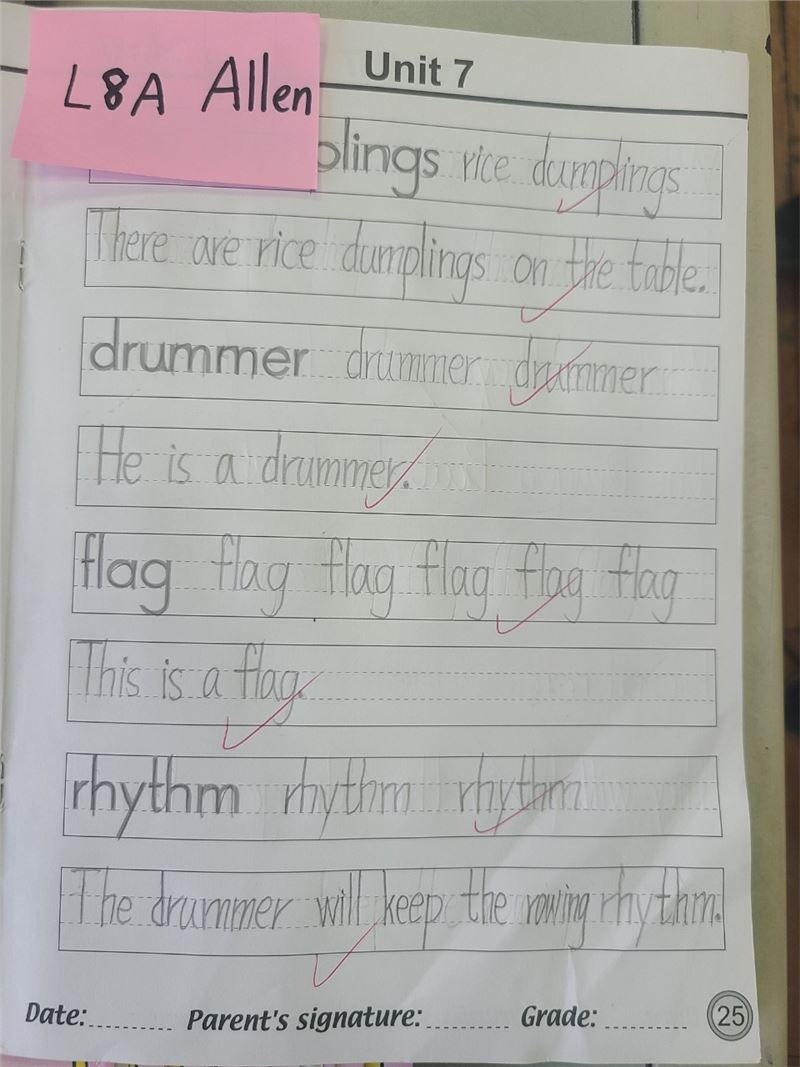 L8A Allen
Unit 7
plings rice dumplings
There are rice dumplings on the table.
drummer drummer drummer
He is a drummer.
flag flag flag flag flag flag
This is a flag.
rhythm rhythm rhythm
The drummer will keep the rowing rhythm.
Date: Parent's signature: Grade:
25